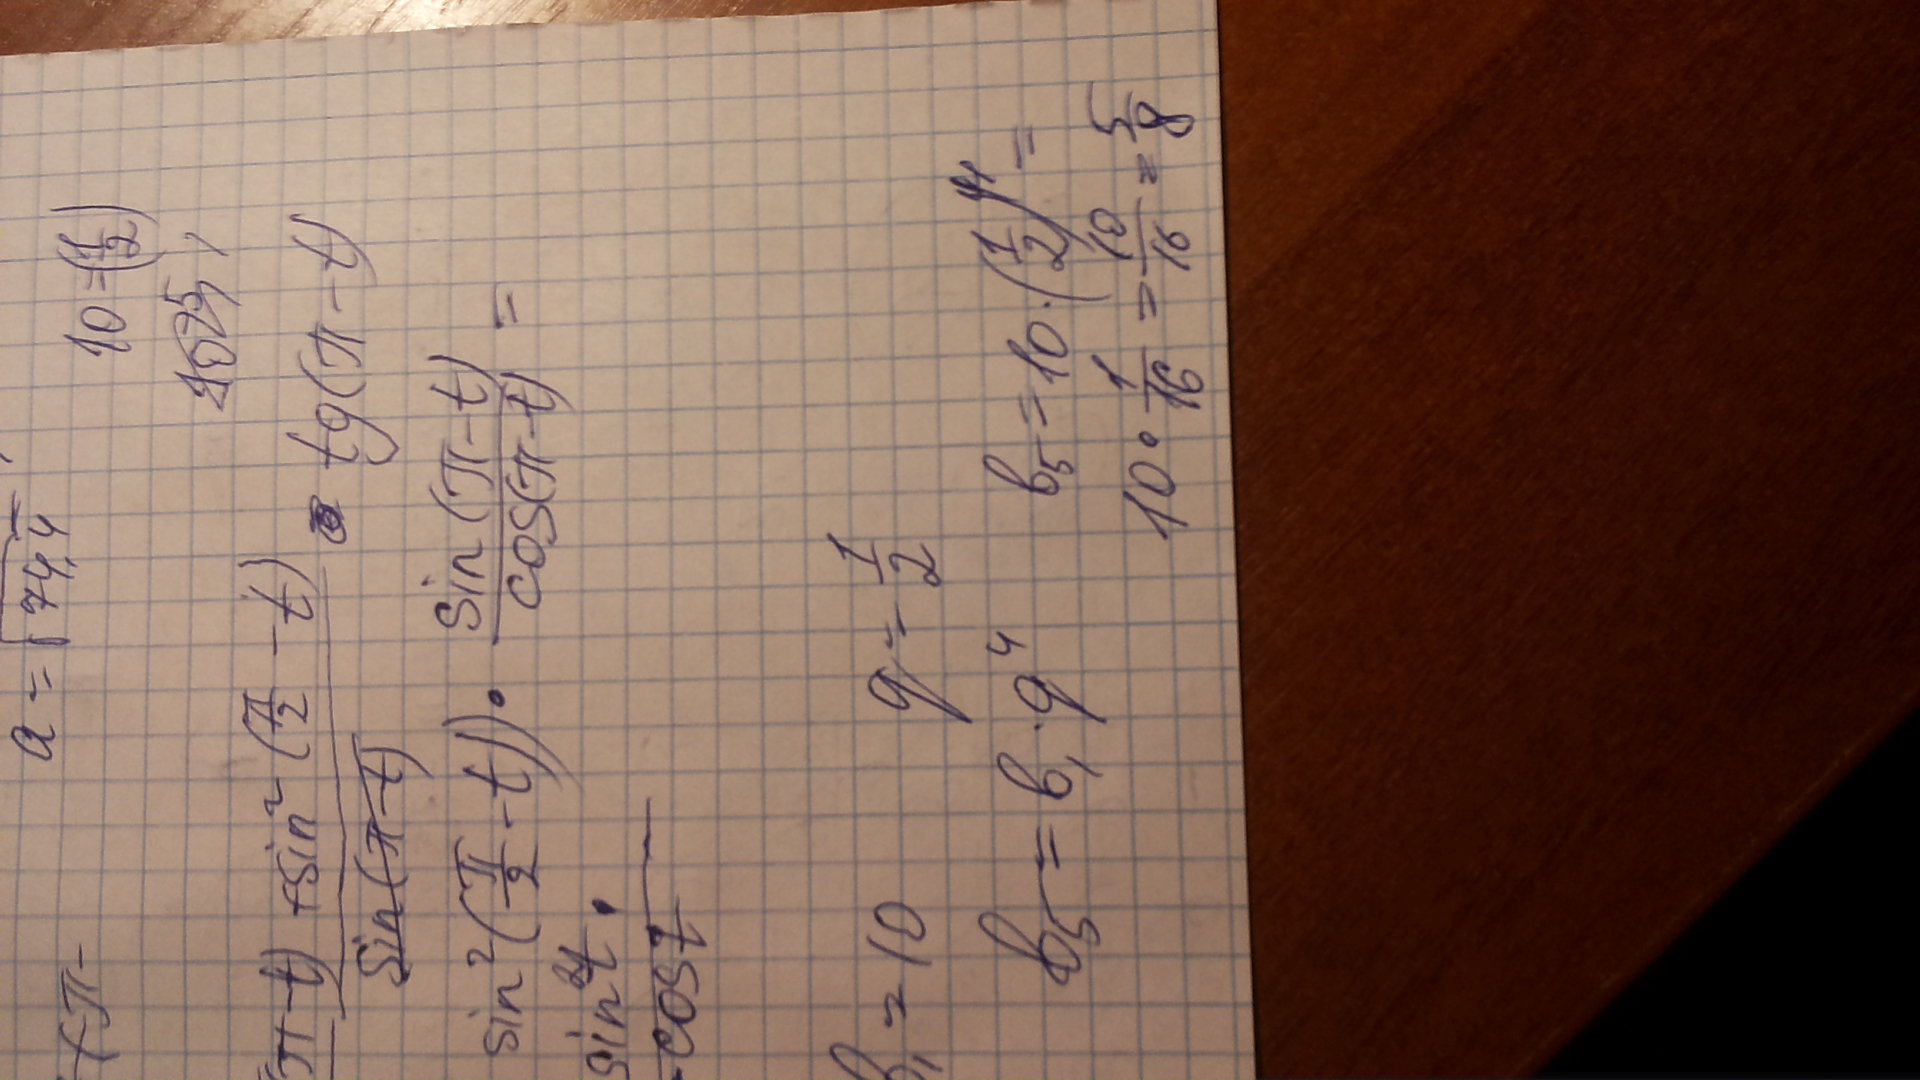 a = √74,4 =
(π-
10 = (1/2)
π-t) + sin²(π/2 - t)
sin(π-t)
tg(π-t)
sin²(π/2 - t)) · sin(π-t)/cos(π-t) =
sin²t ·
-cos t
b₁ = 10 q = 1/2
b₅ = b₁ · q⁴ b₅ = 10 · (1/2)⁴ =
10 · 1/16 = 10/16 = 5/8